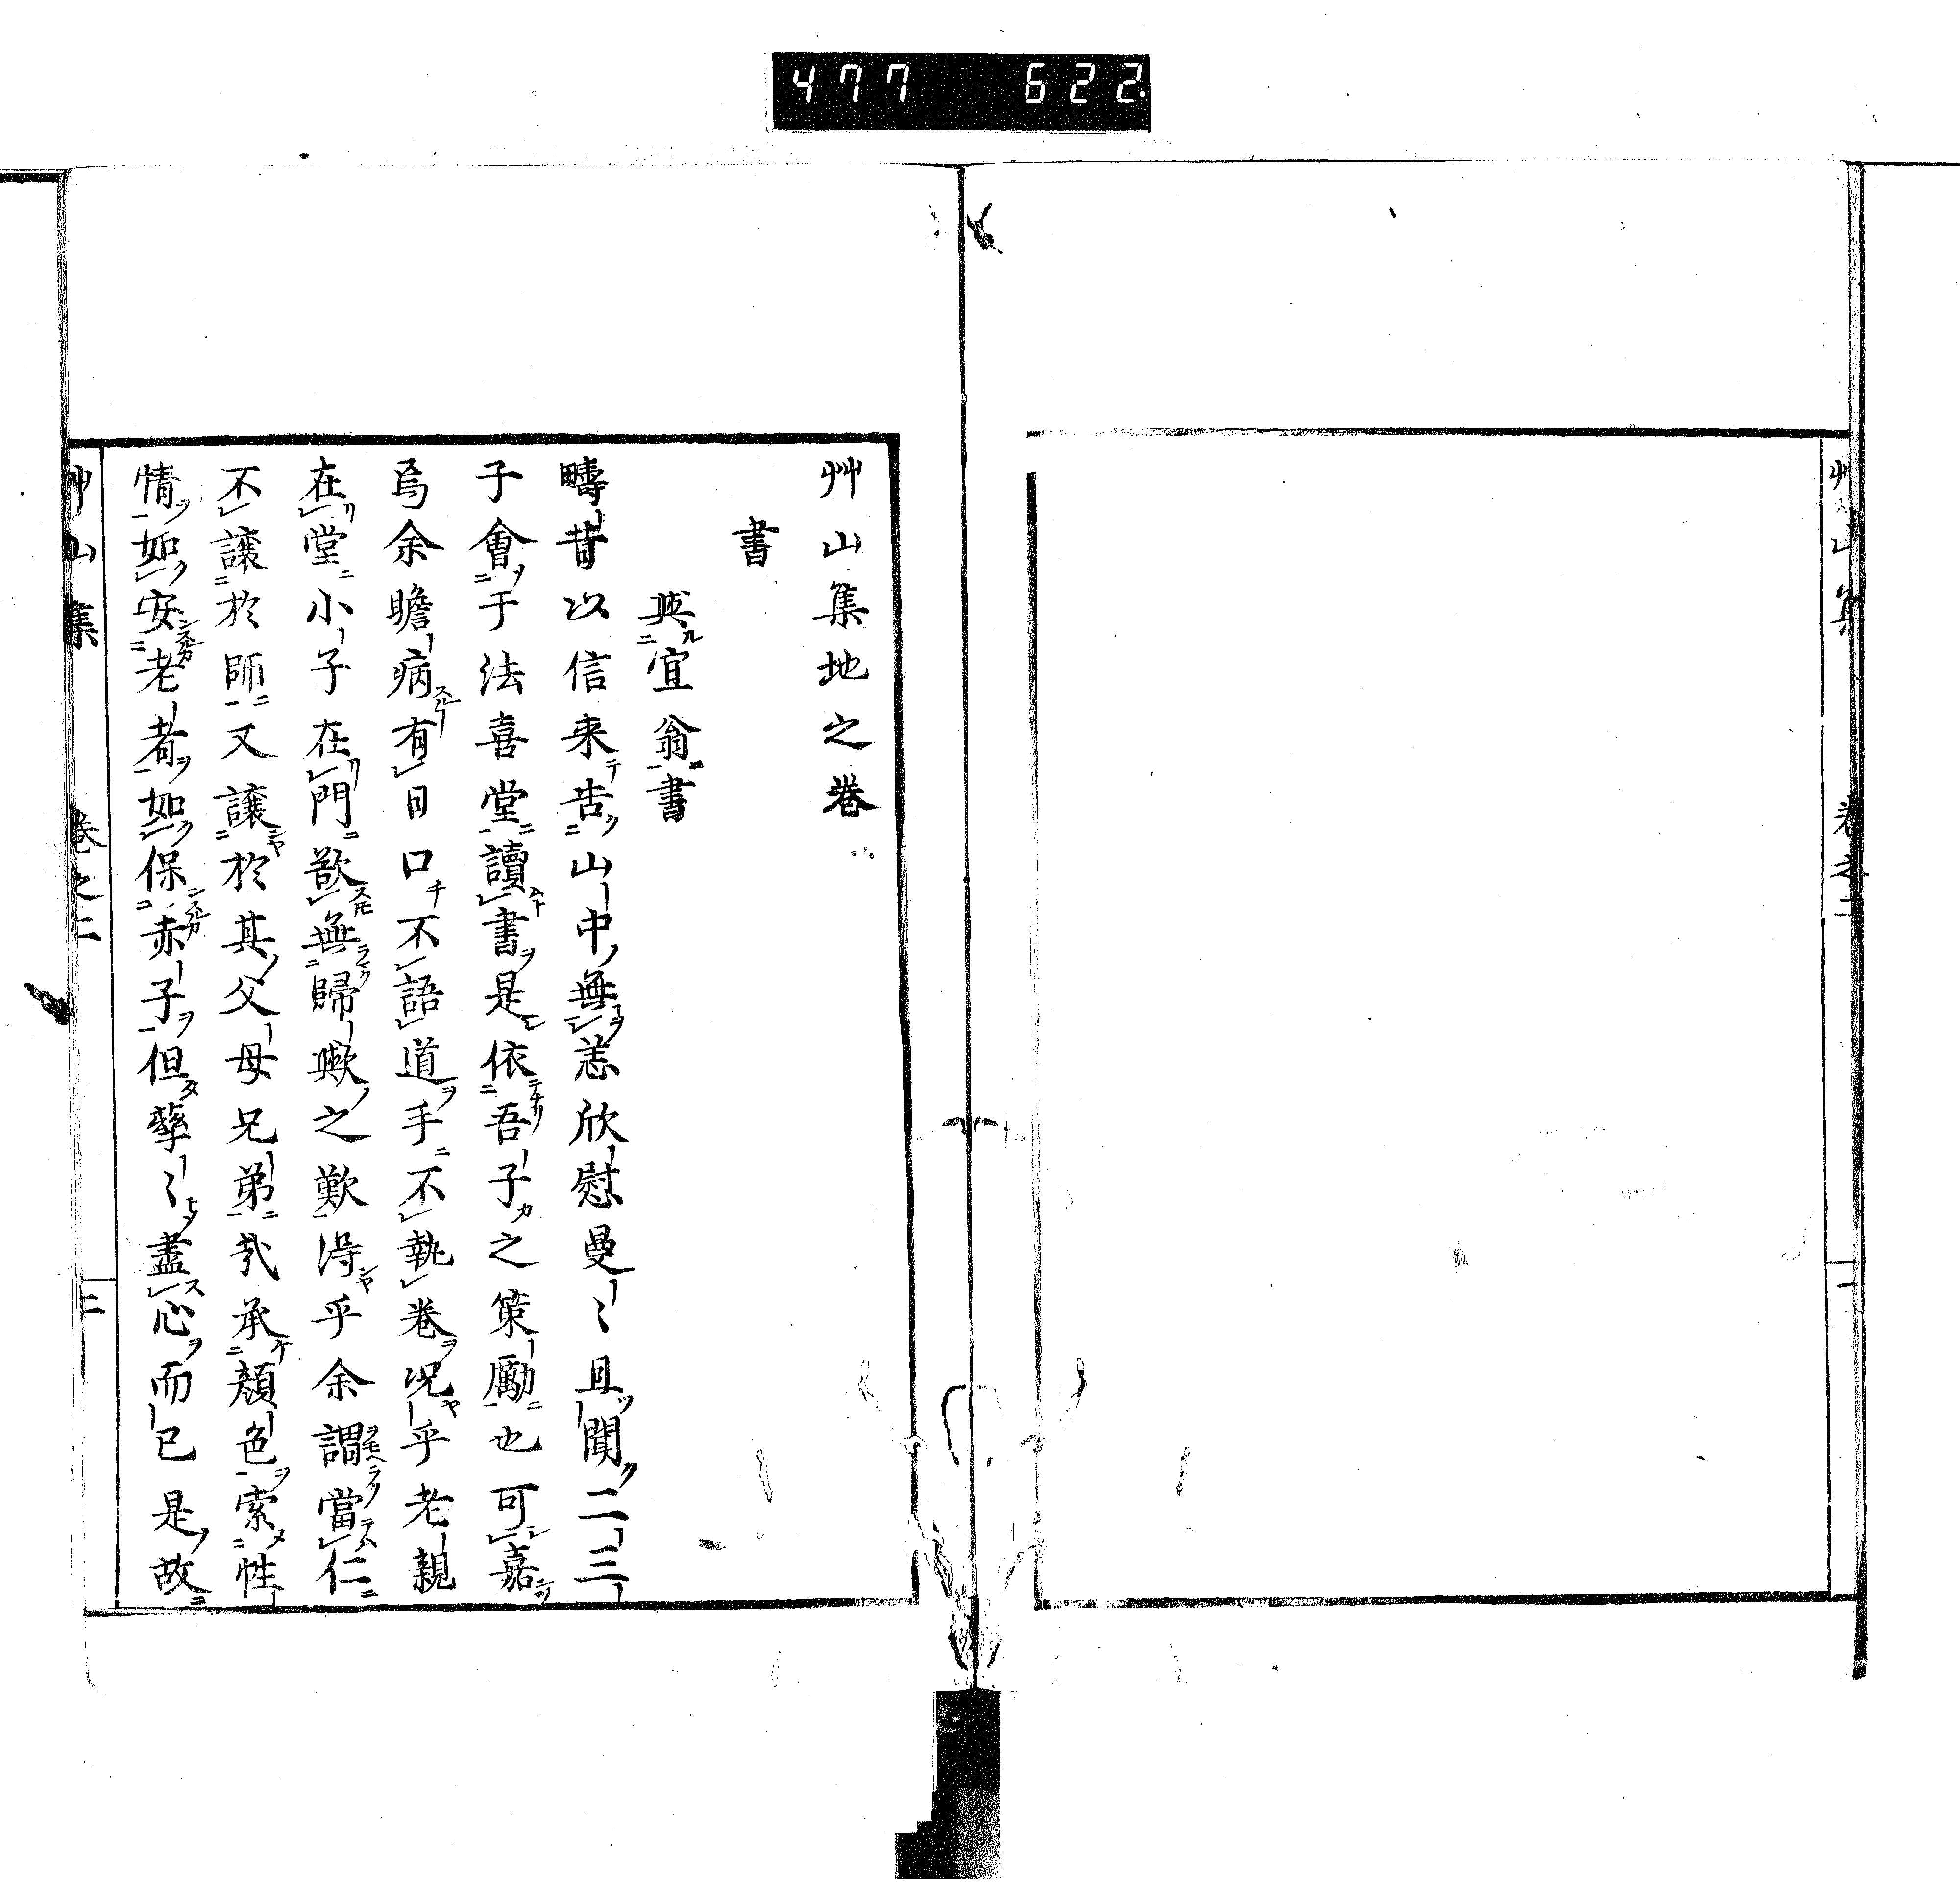 477 622
艸山集地之卷
書
與宜翁書
疇昔以信来告山中無恙欣慰曼〻且聞二三
子會于法喜堂讀書是依吾子之策勵也可嘉
焉余瞻病有日口不語道手不執卷况乎老親
在堂小子在門歆無歸歟之歎得乎余謂當仁
不讓於師又讓於其父母兄弟㢤承顔色索性
情如安老者如保赤子但孳〻盡心而已是故
艸山集 卷之二 二